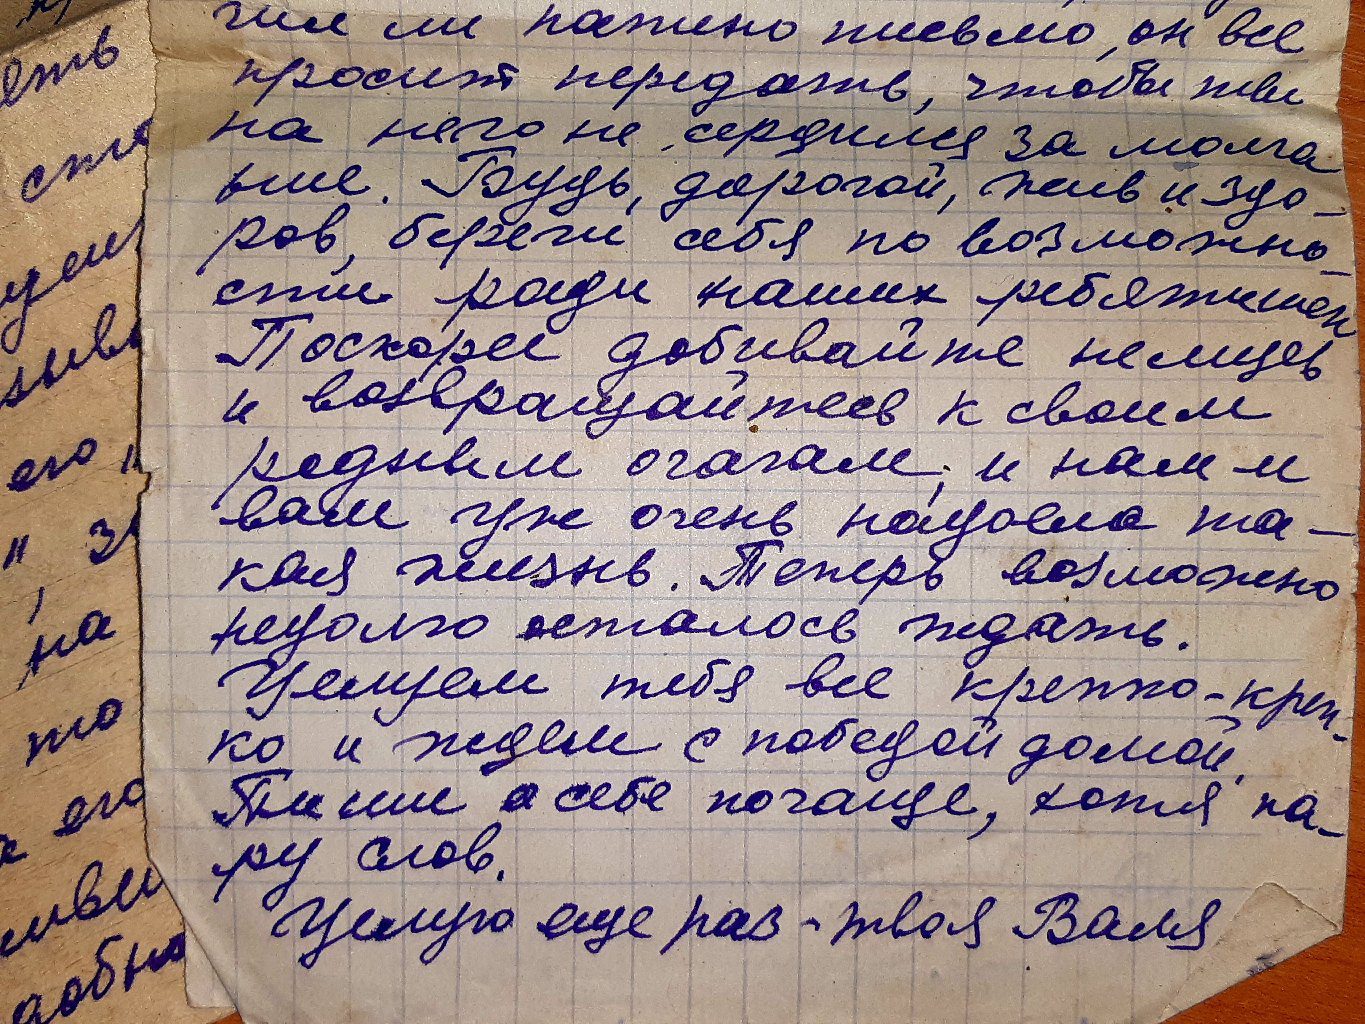 чил ли папино письмо, он все
просит передать, чтобы ты
на него не сердился за молча
ние. Будь, дорогой, жив и здо-
ров, береги себя по возможно-
сти ради наших ребятишек
Поскорее добивайте немцев
и возвращайтесь к своим
родным очагам, и нам и
вам уж очень надоела та-
кая жизнь. Теперь возможно
недолго осталось ждать.
Целуем тебя все крепко-креп-
ко и ждем с победой домой.
Пиши о себе почаще, хотя па-
ру слов.
Целую еще раз - твоя Валя
его
на
то
его